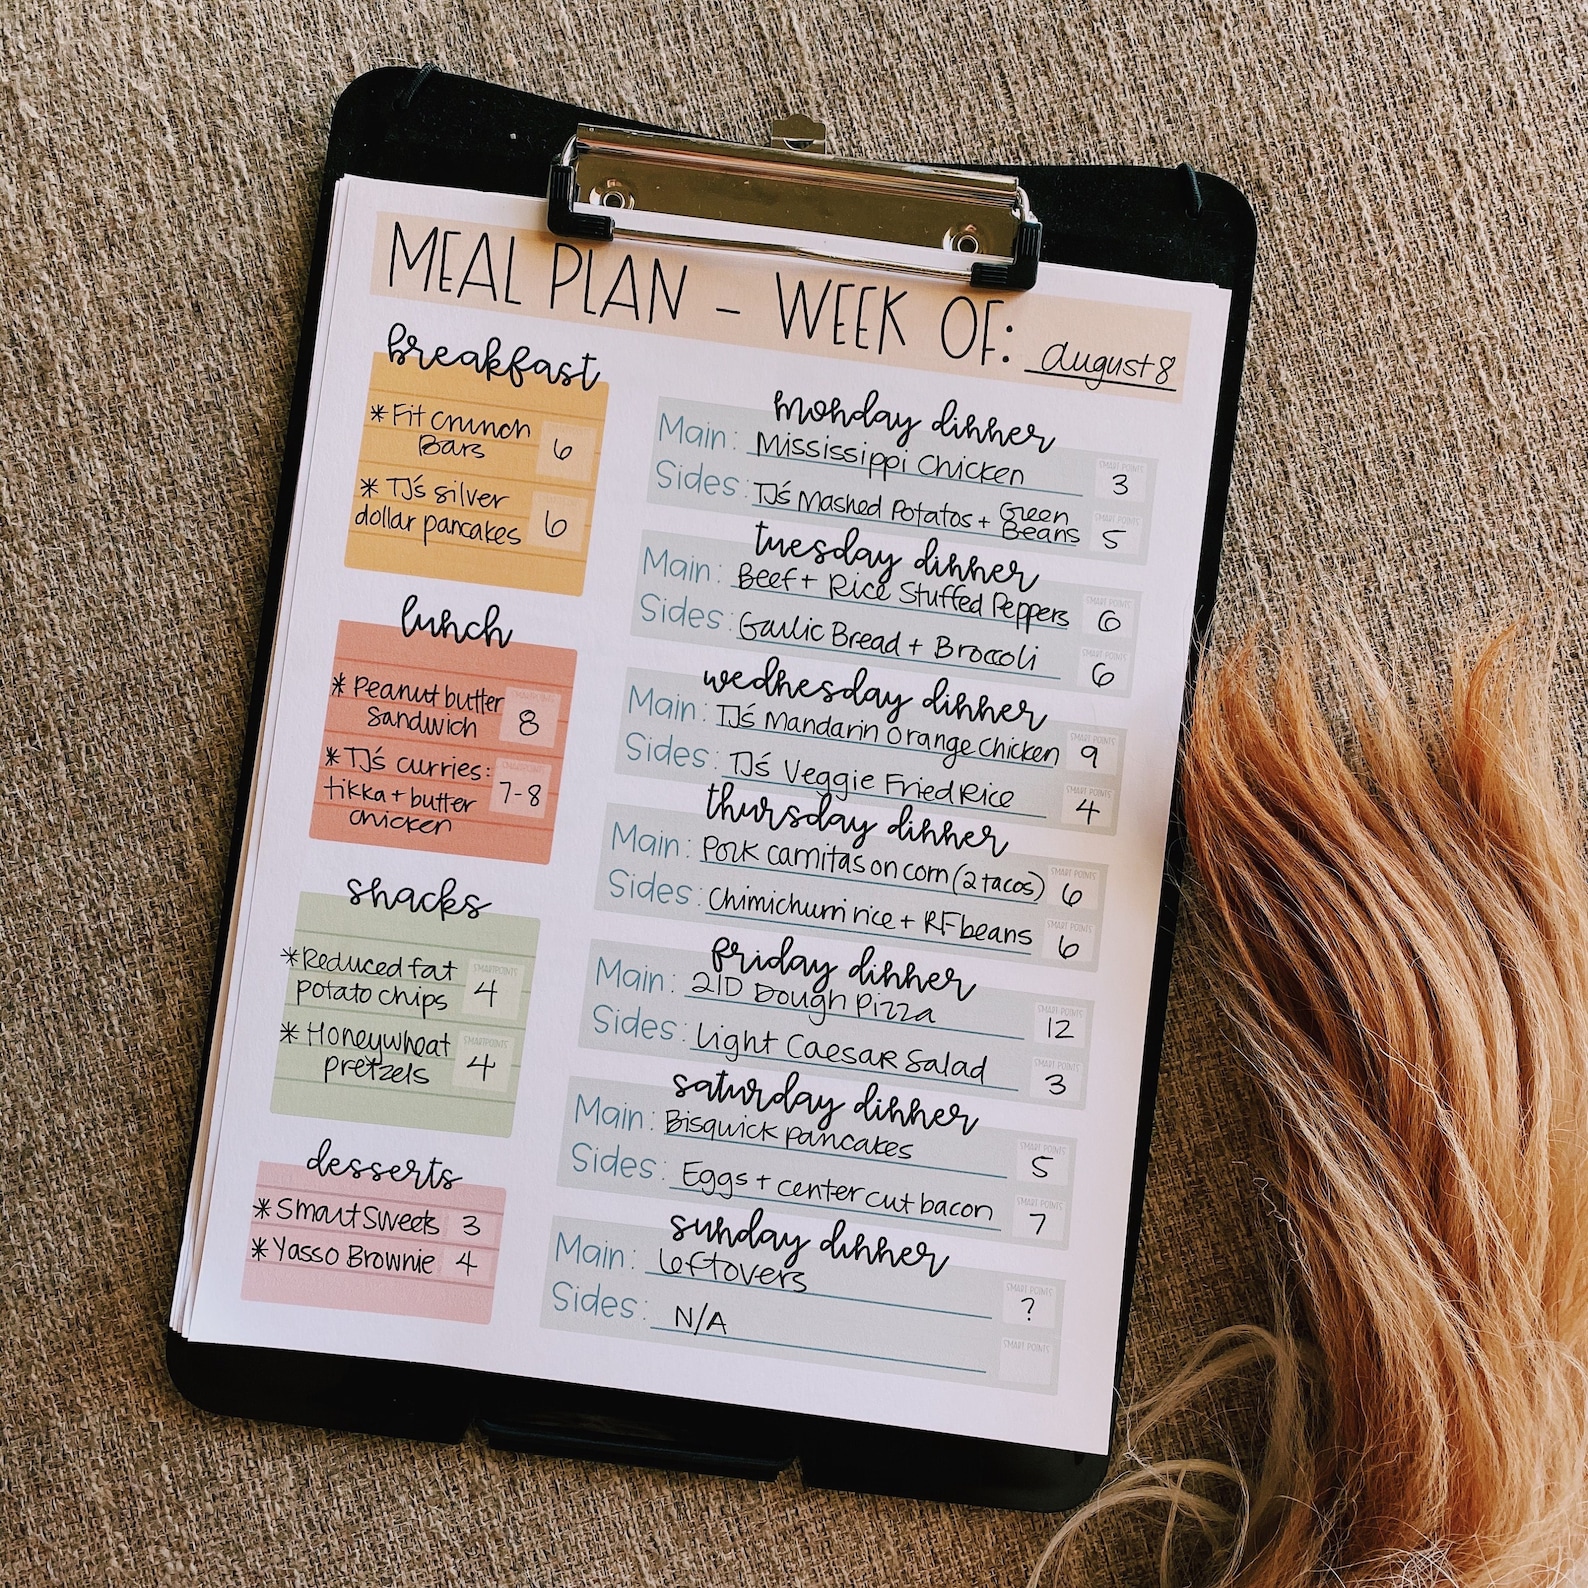 MEAL PLAN - WEEK OF: august 8
breakfast
* Fit Crunch
Bars 6
* TJ's silver
dollar pancakes 6
lunch
* Peanut butter
Sandwich 8
* TJ's curries:
tikka + butter
chicken 7-8
snacks
* Reduced fat
potato chips 4
* Honeywheat
pretzels 4
desserts
* SmartSweets 3
* Yasso Brownie 4
monday dinner
Main: Mississippi Chicken 3
Sides: TJ's Mashed Potatos + Green
Beans 5
tuesday dinner
Main: Beef + Rice Stuffed Peppers 6
Sides: Garlic Bread + Broccoli 6
wednesday dinner
Main: TJ's Mandarin Orange Chicken 9
Sides: TJ's Veggie Fried Rice 4
thursday dinner
Main: Pork carnitas on corn (2 tacos) 6
Sides: Chimichurri rice + RF beans 6
friday dinner
Main: 2ID Dough Pizza 12
Sides: Light Caesar Salad 3
saturday dinner
Main: Bisquick pancakes 5
Sides: Eggs + center cut bacon 7
sunday dinner
Main: Leftovers ?
Sides: N/A
SMART POINTS